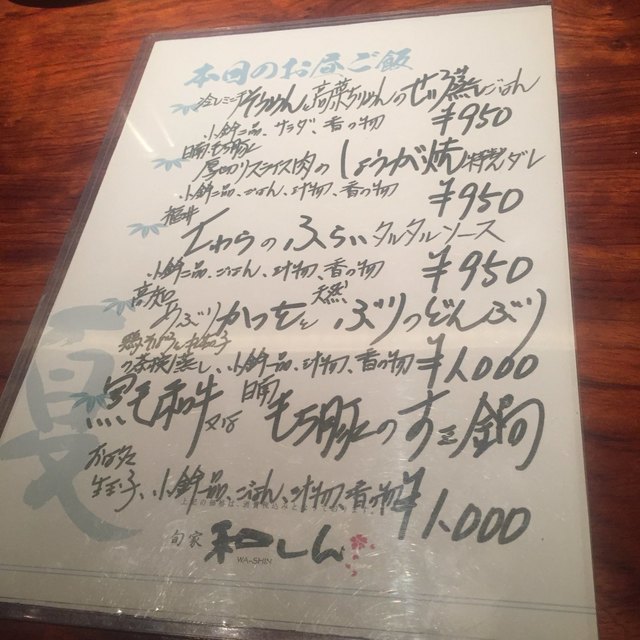 本日のお昼ご飯
冷しミニそうめんと高菜ちりめんのせいろ蒸しごはん
小鉢二品、サラダ、香の物 ¥950
日南もち豚
厚切りスライス肉のしょうが焼 特製ダレ
小鉢二品、ごはん、汁物、香の物 ¥950
福井
さわらのふらい タルタルソース
小鉢二品、ごはん、汁物、香の物 ¥950
高知 天然
あぶりかつをとぶりのどんぶり
茶碗蒸し、小鉢一品、汁物、香の物 ¥1,000
黒毛和牛 又は 日南もち豚のすき鍋
生玉子、小鉢一品、ごはん、汁物、香の物 ¥1,000
夏
旬家 和しん
WA-SHIN